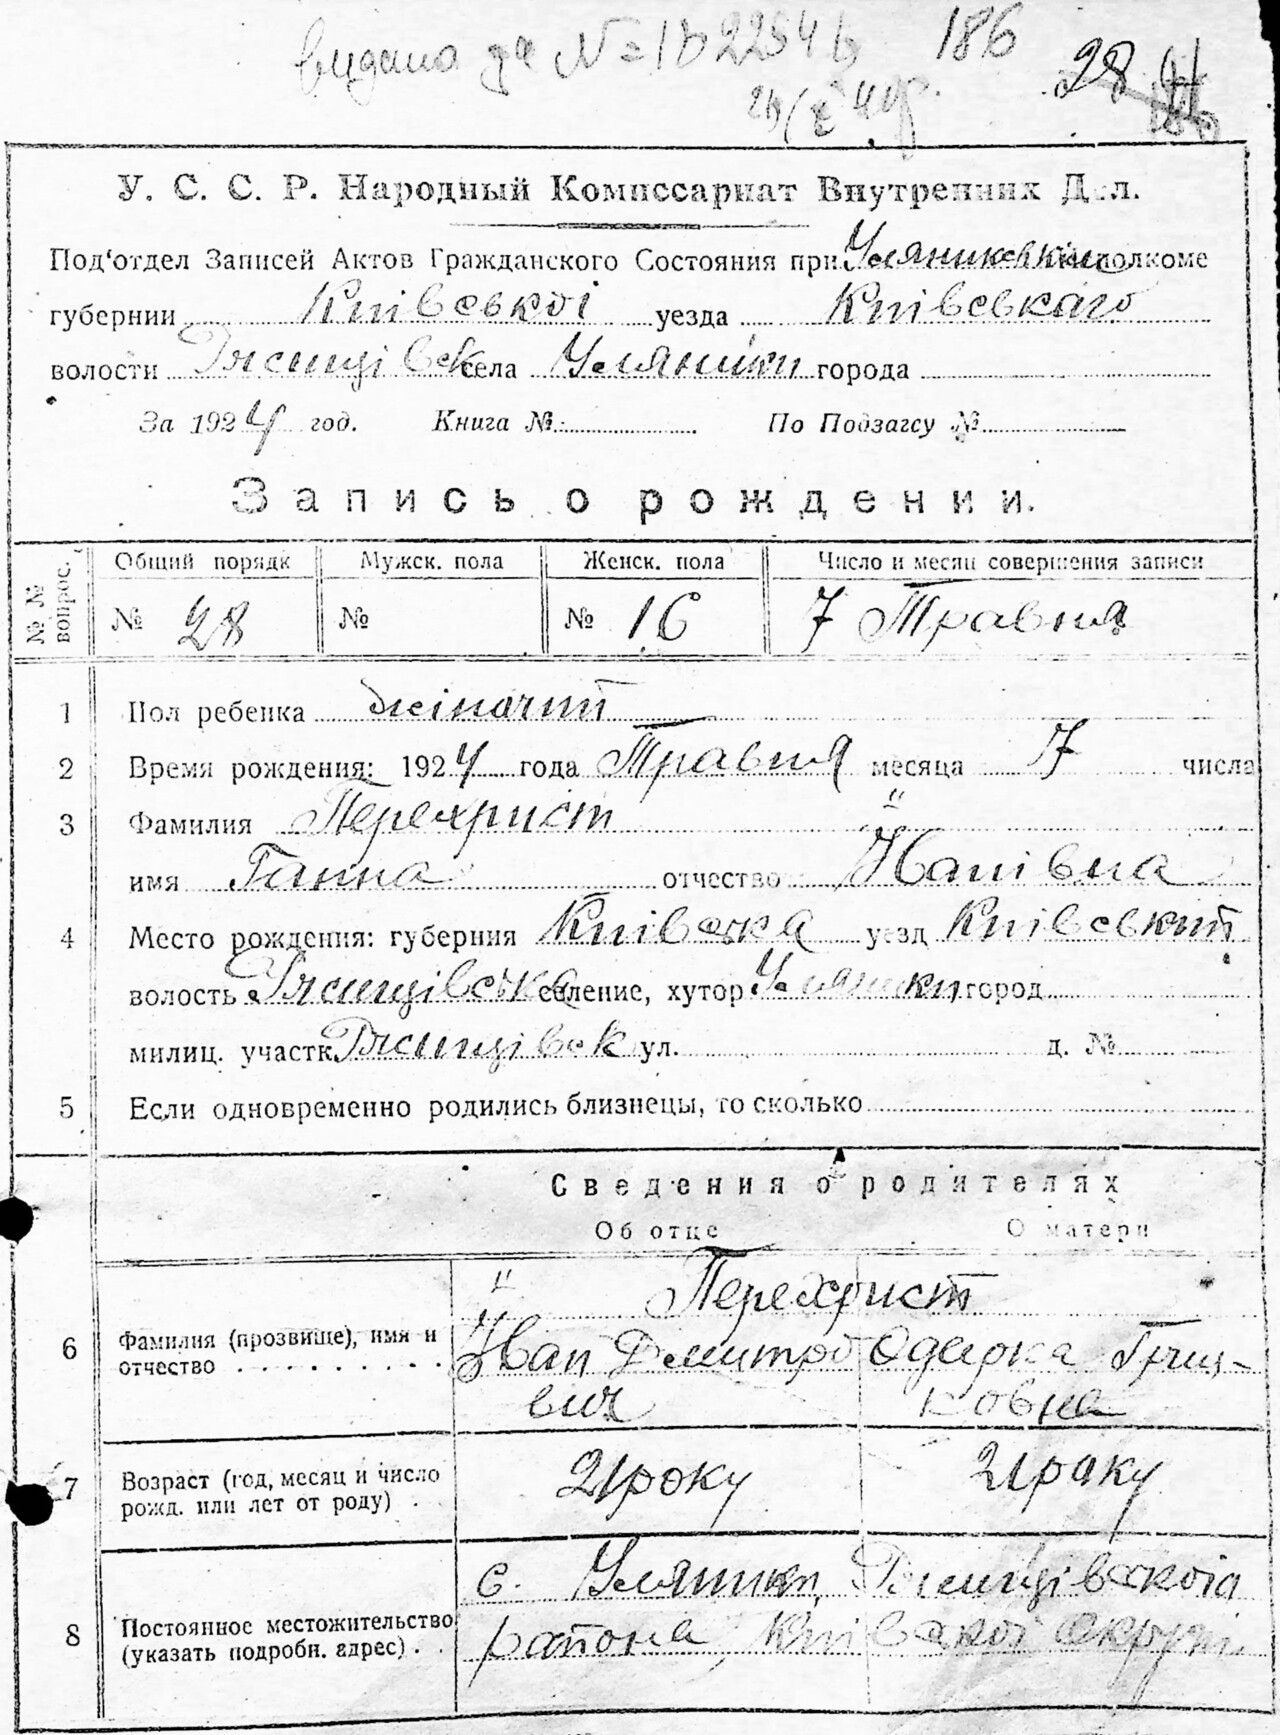 видана за №
186
28
У. С. С. Р. Народный Комиссариат Внутренних Дел.
Под‘отдел Записей Актов Гражданского Состояния при Уляниковским исполкоме
губернии Київської уезда Київського
волости Ржищівськ села Уляники города
За 1924 год. Книга №. По Подзагсу №
Запись о рождении.
№ № вопрос. Общий порядк Мужск. пола Женск. пола Число и месяц совершения записи
№ 28 № № 16 7 Травня
1 Пол ребенка жіночий
2 Время рождения: 1924 года Травня месяца 7 числа
3 Фамилия Перехрист
имя Ганна отчество Йванівна
4 Место рождения: губерния Київська уезд Київський
волость Ржищівська селение, хутор Уляники город
милиц. участк. Ржищівськ ул. д. №
5 Если одновременно родились близнецы, то сколько
Сведения о родителях
Об отце О матери
Перехрист
6 Фамилия (прозвище), имя и отчество . . . . . . . . . Йван Дмитро Одарка Гриц-
вич ковна
7 Возраст (год, месяц и число рожд. или лет от роду) . 21 року 21 року
8 Постоянное местожительство (указать подробн. адрес) . . с. Уляники, Ржищівської
района, Київської округи